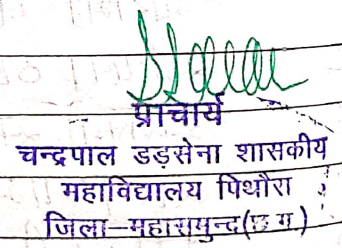 प्राचार्य
चन्द्रपाल डड़सेना शासकीय
महाविद्यालय पिथौरा
जिला–महासमुन्द(छ ग)